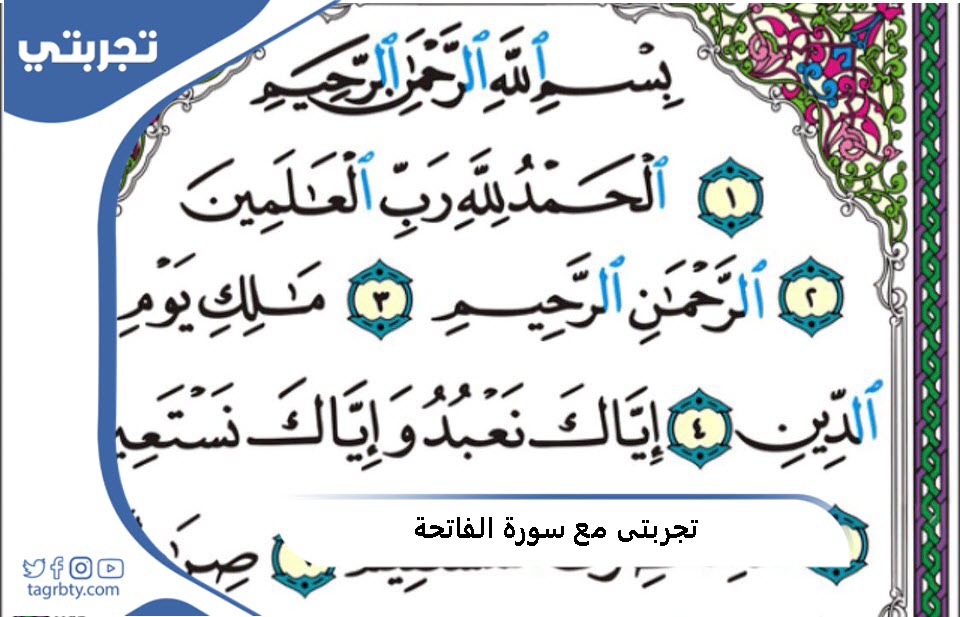 تجربتي
بِسْمِ ٱللَّهِ ٱلرَّحْمَٰنِ ٱلرَّحِيمِ
١ ٱلْحَمْدُ لِلَّهِ رَبِّ ٱلْعَٰلَمِينَ
٢ ٱلرَّحْمَٰنِ ٱلرَّحِيمِ ٣ مَٰلِكِ يَوْمِ
ٱلدِّينِ ٤ إِيَّاكَ نَعْبُدُ وَإِيَّاكَ نَسْتَعِي
تجربتى مع سورة الفاتحة
tagrbty.com